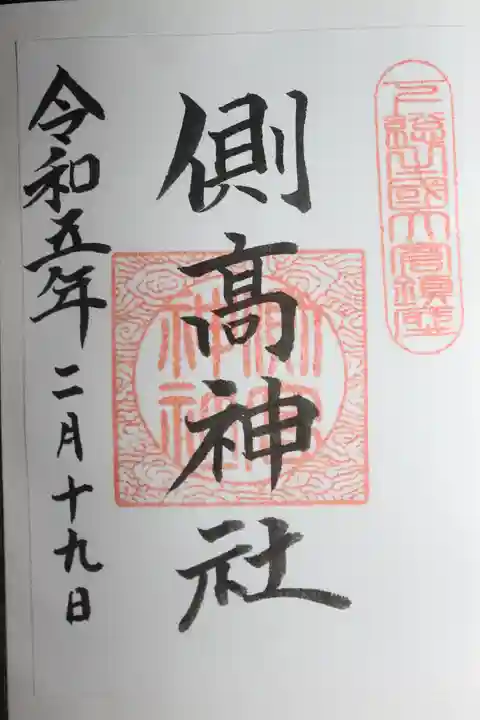 下總之國大倉鎮座
側髙神社
側高
神社
令和五年二月十九日